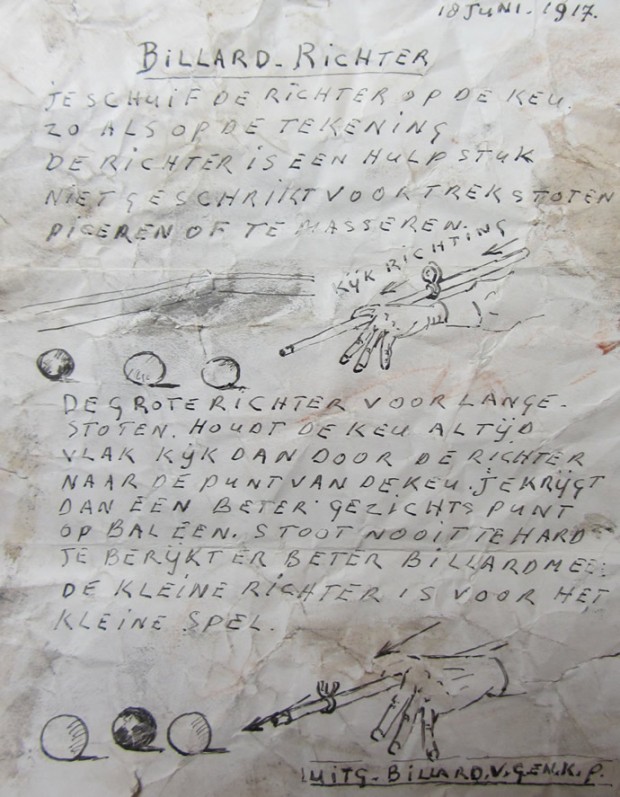 18 JUNI. 1917.
BILLARD-RICHTER
JE SCHUIF DE RICHTER OP DE KEU.
ZO ALS OP DE TEKENING
DE RICHTER IS EEN HULP STUK
NIET GESCHRIKT VOOR TREKSTOTEN
PICEREN OF TE MASSEREN.
KIJK RICHTING
DE GROTE RICHTER VOOR LANGE-
STOTEN. HOUDT DE KEU ALTIJD
VLAK KIJK DAN DOOR DE RICHTER
NAAR DE PUNT VAN DE KEU. JE KRIJGT
DAN EEN BETER GEZICHTS PUNT
OP BAL EEN. STOOT NOOIT TE HARD
JE BERIJKT ER BETER BILLARD MEE.
DE KLEINE RICHTER IS VOOR HET
KLEINE SPEL.
UITG. BILLARD.V.GEN.K.P.